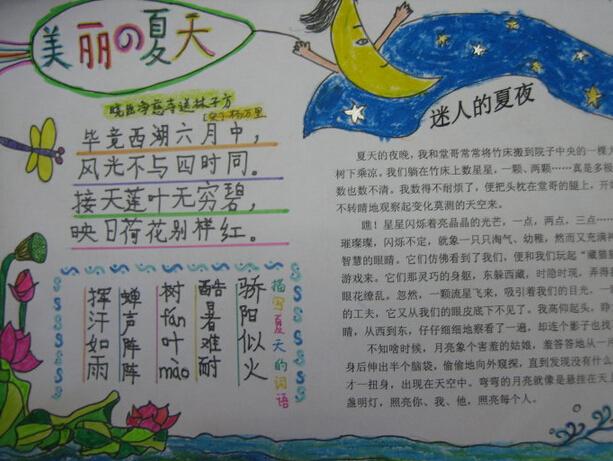 美丽の夏天
晓出净慈寺送林子方
杨万里
毕竟西湖六月中，
风光不与四时同。
接天莲叶无穷碧，
映日荷花别样红。
描写夏天的词语
骄阳似火
酷暑难耐
树fán叶mào
蝉声阵阵
挥汗如雨
迷人的夏夜
夏天的夜晚，我和堂哥常常将竹床搬到院子中央的一棵大
树下乘凉，我们躺在竹床上数星星，一颗、两颗……真是多极
数也数不清。我数得不耐烦了，便把头枕在堂哥的腿上，开
不转睛地观察起变化莫测的天空来。
瞧！星星闪烁着亮晶晶的光芒，一点，两点，三点……
璀璨璨，闪烁不定，就象一只只淘气、幼稚，然而又充满神
智慧的眼睛。它们仿佛看到了我们，便和我们玩起“藏猫
游戏来。它们那灵巧的身躯，东躲西藏，时隐时现，弄得
眼花缭乱。忽然，一颗流星飞来，吸引着我们的目光。一
的工夫，它又从我们的眼皮底下不见了。我高仰起头，睁
睛，从西到东，仔仔细细地察看了一遍，却连个影子也找
不知啥时候，月亮象个害羞的姑娘，羞答答地从一
身后伸出半个脑袋，偷偷地向外窥探，直到发现没有什么
才一扭身，出现在天空中。弯弯的月亮就像是悬挂在天上
盏明灯，照亮你、我、他，照亮每个人。